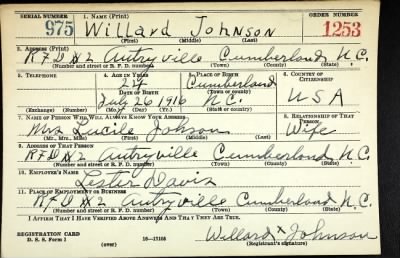 SERIAL NUMBER 1. NAME (Print) ORDER NUMBER
975 Willard Johnson 1253
(First) (Middle) (Last)
2. ADDRESS (Print)
RFD #2 Autryville Cumberland N.C.
(Number and street or R. F. D. number) (Town) (County) (State)
3. TELEPHONE 4. AGE IN YEARS 5. PLACE OF BIRTH 6. COUNTRY OF CITIZENSHIP
24 Cumberland
DATE OF BIRTH (Town or county)
July 26 1916 N.C. USA
(Exchange) (Number) (Mo.) (Day) (Yr.) (State or country)
7. NAME OF PERSON WHO WILL ALWAYS KNOW YOUR ADDRESS 8. RELATIONSHIP OF THAT PERSON
Mrs Lucile Johson Wife
(Mr., Mrs., Miss) (First) (Middle) (Last)
9. ADDRESS OF THAT PERSON
RFD #2 Autryville Cumberland N.C.
(Number and street or R. F. D. number) (Town) (County) (State)
10. EMPLOYER'S NAME
Lester Davis
11. PLACE OF EMPLOYMENT OR BUSINESS
RFD #2 Autryville Cumberland N.C.
(Number and street or R. F. D. number) (Town) (County) (State)
I AFFIRM THAT I HAVE VERIFIED ABOVE ANSWERS AND THAT THEY ARE TRUE.
REGISTRATION CARD
D. S. S. Form 1 (over) 16—17105 Willard x Johnson
(Registrant's signature)